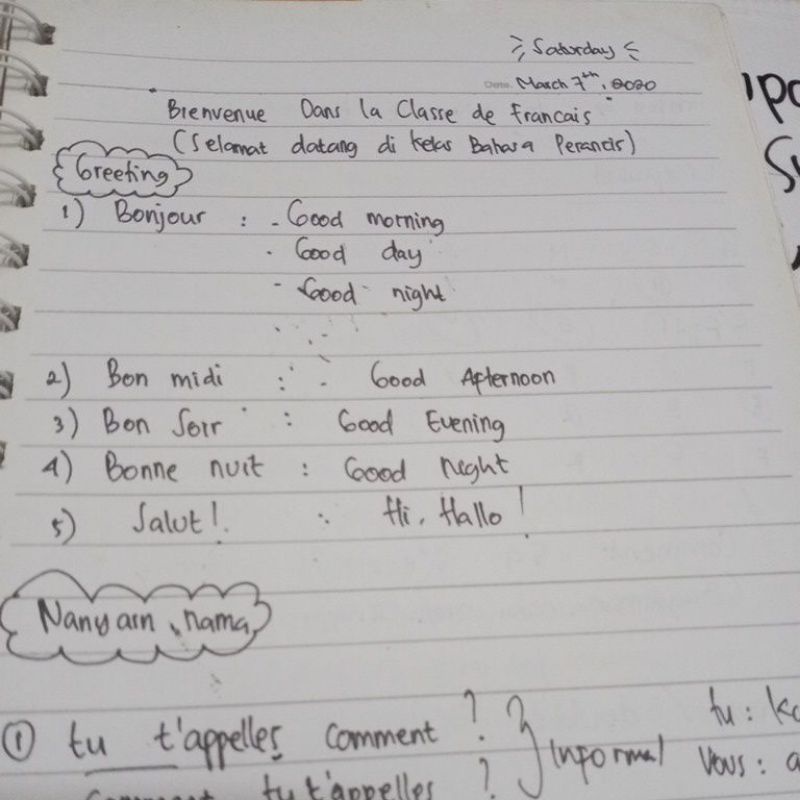 Saturday
Date. March 7th, 2020
Bienvenue Dans la Classe de Francais
(Selamat datang di kelas Bahasa Perancis)
Greeting
1) Bonjour : - Good morning
- Good day
- Good night
2) Bon midi : - Good Afternoon
3) Bon Soir : Good Evening
4) Bonne nuit : Good Night
5) Salut! : Hi, Hallo!
Nanyain nama
① tu t'appelles comment ? } Informal
tu :
Vous :
Comment tu t'appelles ?